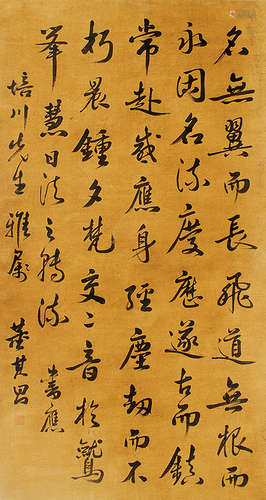 名無翼而長飛道無根而
永固名流慶歷遂古而鎮
常赴感應身經塵劫而不
朽晨鐘夕梵交二音於鷲
峯慧日法之轉流 書應
培川先生雅屬 董其昌